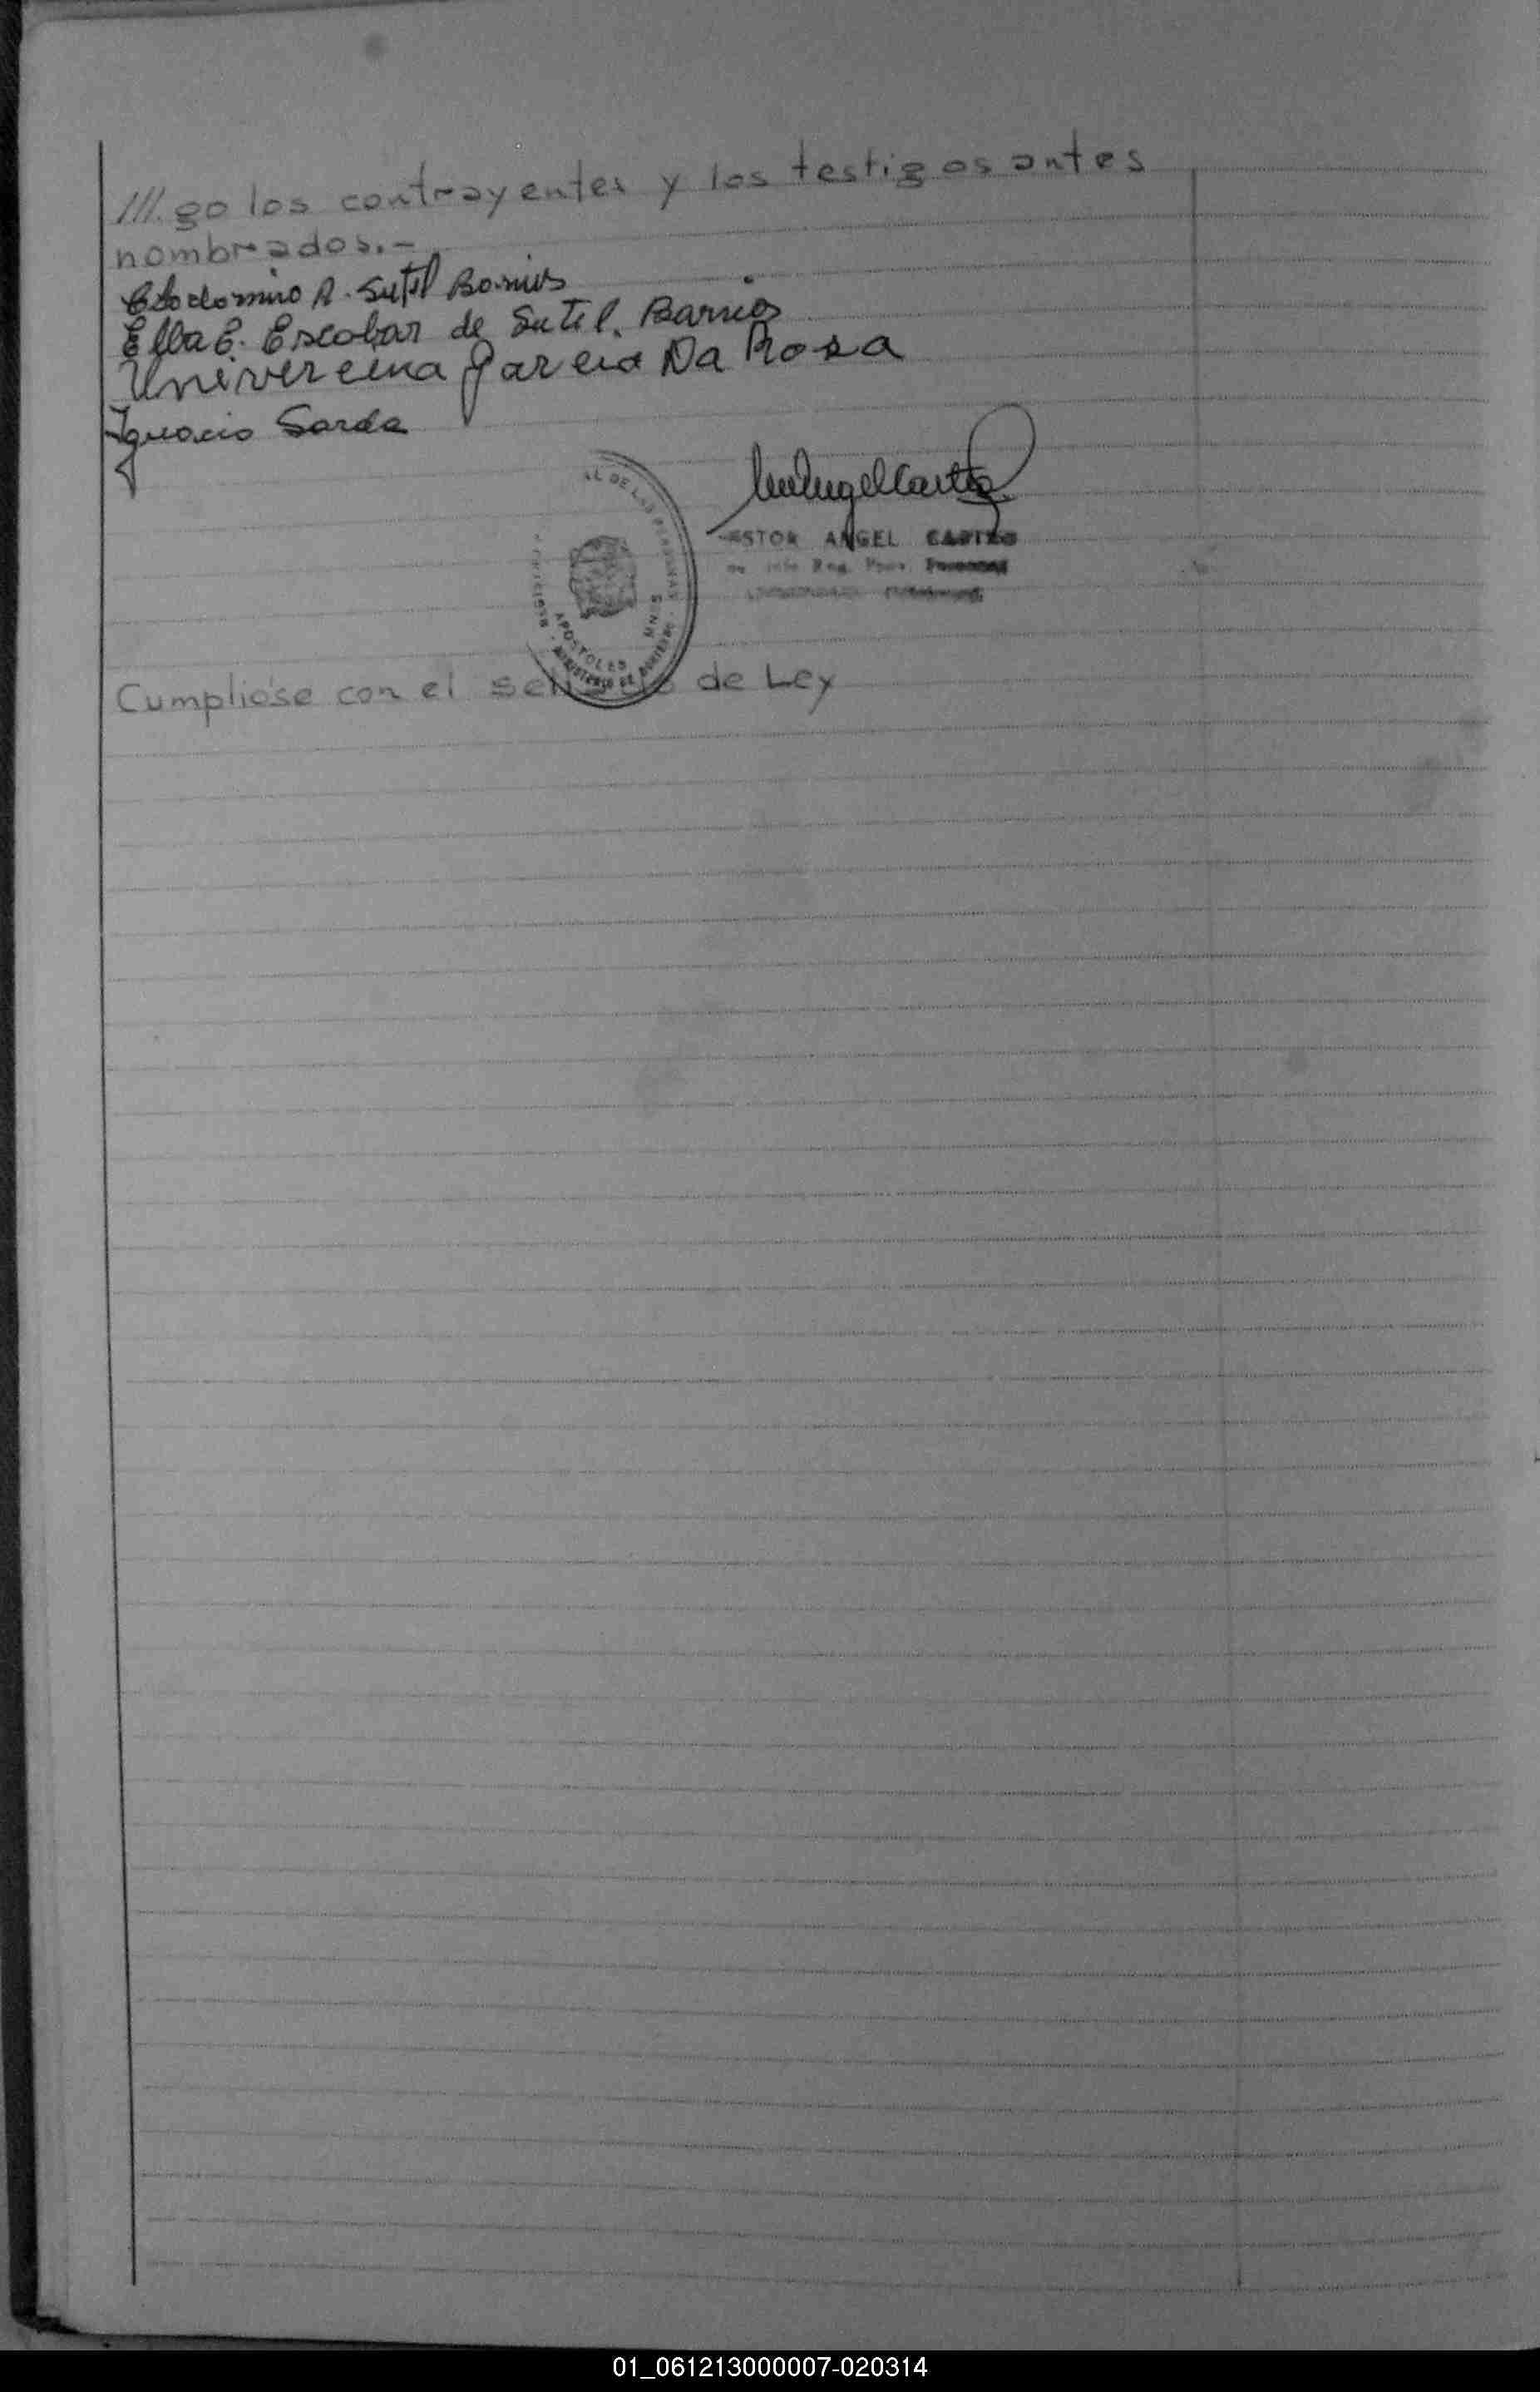 ///.go los contrayentes y los testigos antes
nombrados.-
Clodomiro R. Sutil Barrios
Ella E. Escobar de Sutil. Barrios
Univercina Garcia Da Rosa
Ignacio Sarda
ESTOR ANGEL
Reg. Prov.
AL DE LAS PERSONAS
APOSTOLES MNES
MINISTERIO DE GOBIERNO
Cumplióse con el sellado de Ley
01_061213000007-020314